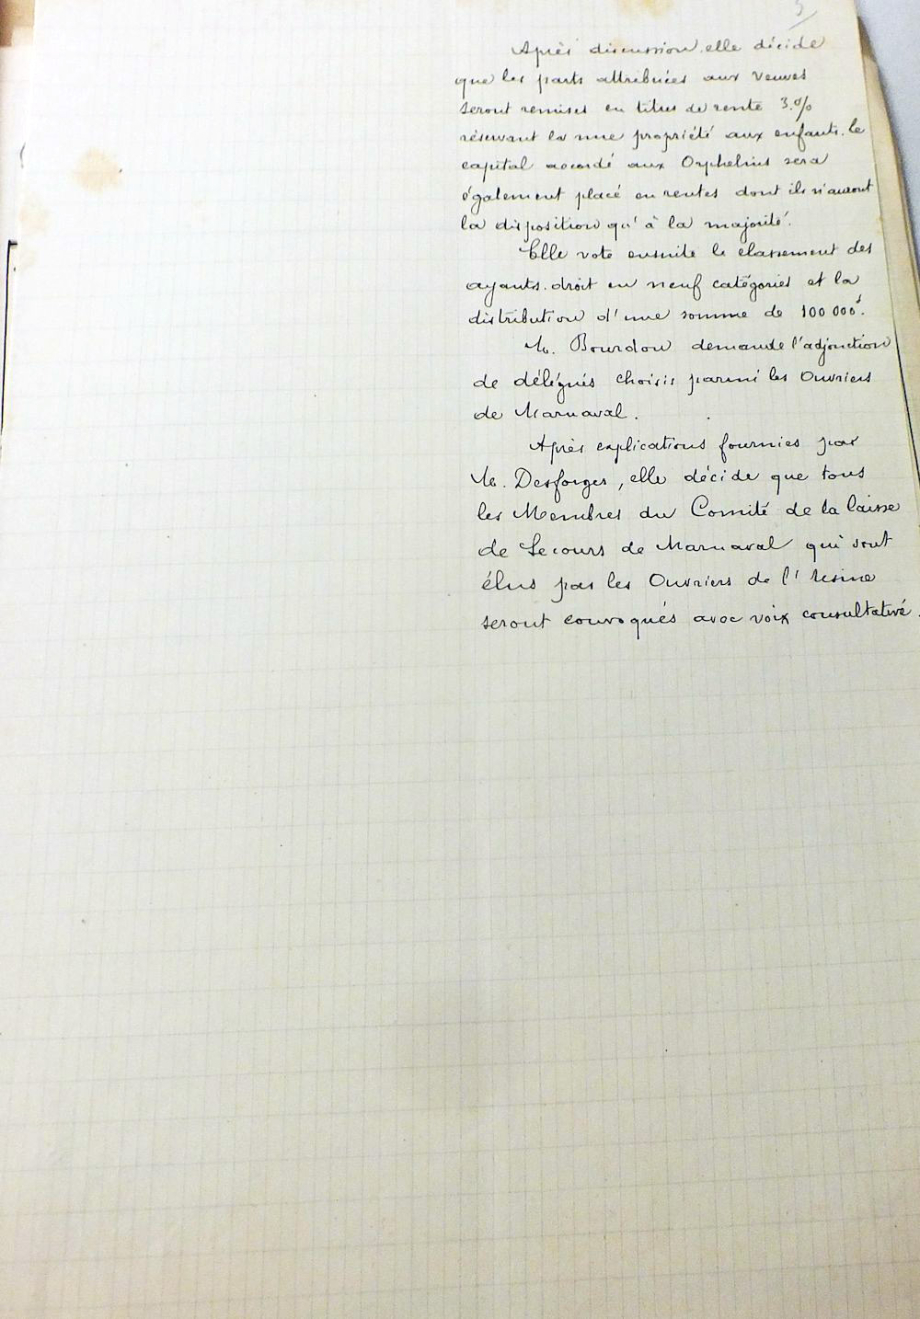 3
Après discussion, elle décide
que les parts attribuées aux Veuves
seront remises en titres de rente 3 %
réservant la nue propriété aux enfants. le
capital accordé aux Orphelins sera
également placé en rentes dont ils n'auront
la disposition qu'à la majorité.
Elle vote ensuite le classement des
ayants-droit en neuf catégories et la
distribution d'une somme de 100 000f.
M. Bourdon demande l'adjonction
de délégués choisis parmi les Ouvriers
de Marnaval.
Après explications fournies par
M. Desforges, elle décide que tous
les Membres du Comité de la Caisse
de Secours de Marnaval qui sont
élus par les Ouvriers de l'Usine
seront convoqués avec voix consultative.